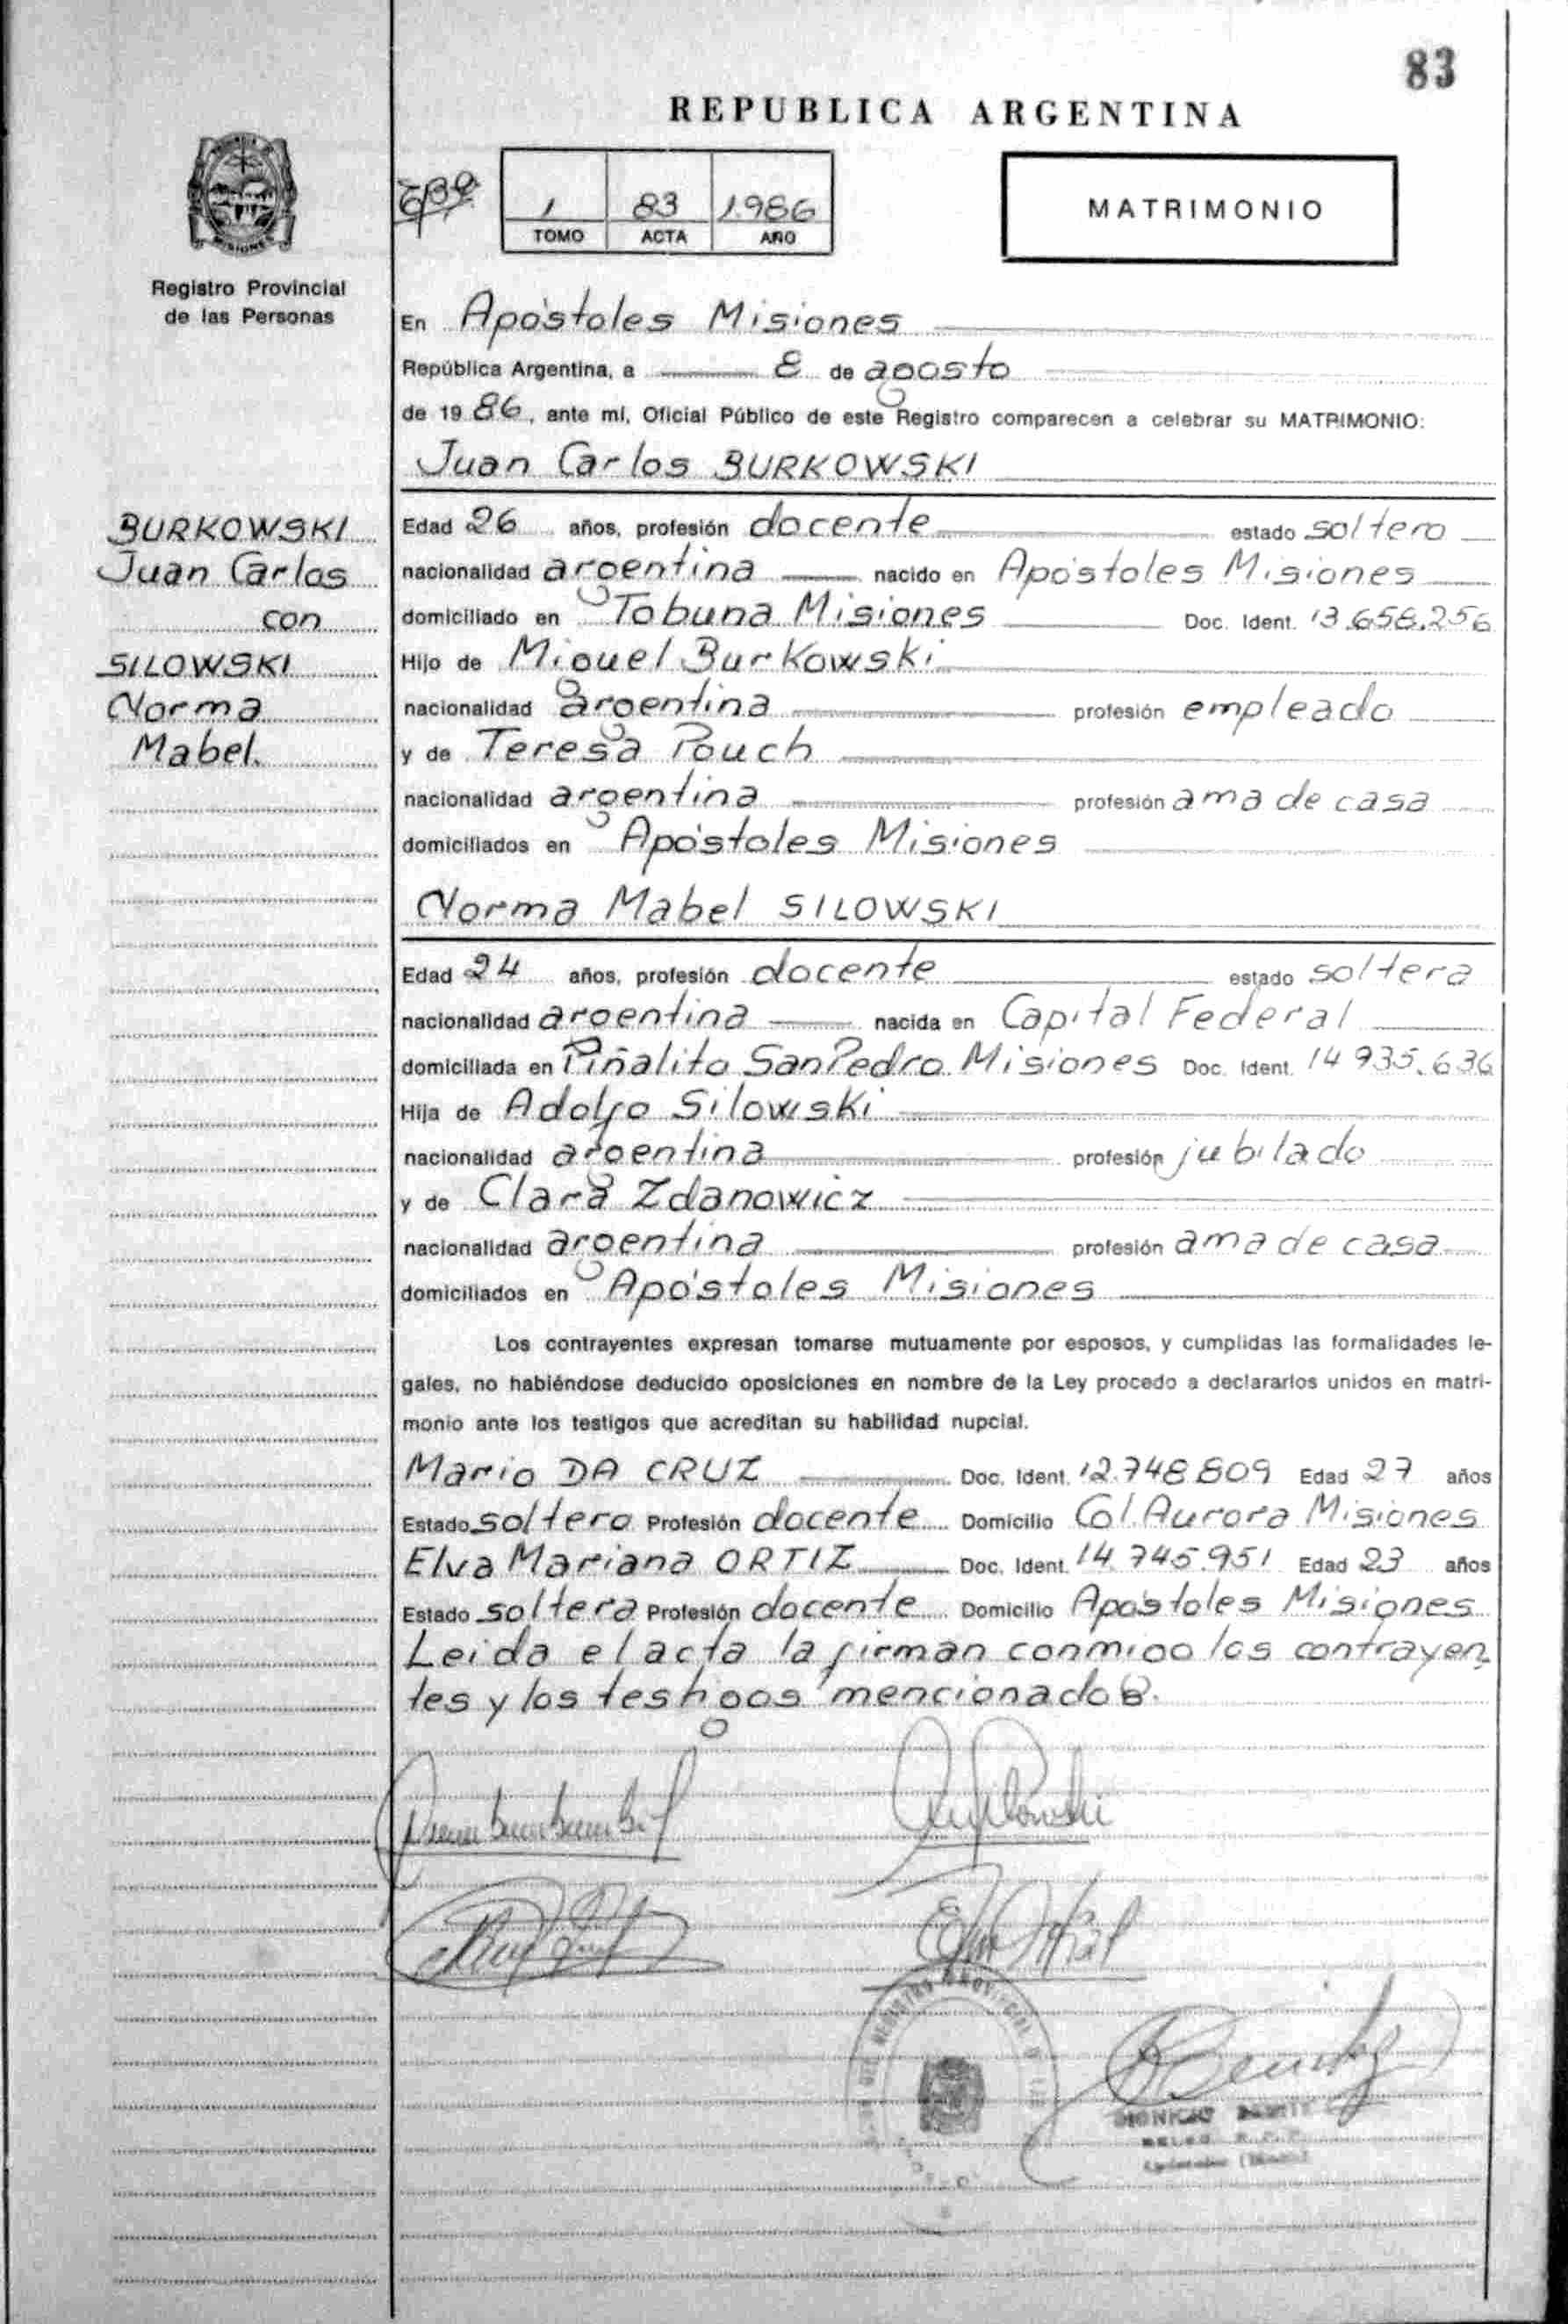 83
REPUBLICA ARGENTINA
MISIONES
Registro Provincial
de las Personas
1 83 1986
TOMO ACTA AÑO
MATRIMONIO
En Apóstoles Misiones
República Argentina, a 8 de agosto
de 1986, ante mí, Oficial Público de este Registro comparecen a celebrar su MATRIMONIO:
Juan Carlos BURKOWSKI
BURKOWSKI
Juan Carlos
con
SILOWSKI
Norma
Mabel.
Edad 26 años, profesión docente estado soltero
nacionalidad argentina nacido en Apóstoles Misiones
domiciliado en Tobuna Misiones Doc. Ident. 13.658.256
Hijo de Miguel Burkowski
nacionalidad argentina profesión empleado
y de Teresa Pouch
nacionalidad argentina profesión ama de casa
domiciliados en Apóstoles Misiones
Norma Mabel SILOWSKI
Edad 24 años, profesión docente estado soltera
nacionalidad argentina nacida en Capital Federal
domiciliada en Piñalito San Pedro Misiones Doc. Ident. 14 935.636
Hija de Adolfo Silowski
nacionalidad argentina profesión jubilado
y de Clara Zdanowicz
nacionalidad argentina profesión ama de casa
domiciliados en Apóstoles Misiones
Los contrayentes expresan tomarse mutuamente por esposos, y cumplidas las formalidades le-
gales, no habiéndose deducido oposiciones en nombre de la Ley procedo a declararlos unidos en matri-
monio ante los testigos que acreditan su habilidad nupcial.
Mario DA CRUZ Doc. Ident. 12.748.809 Edad 27 años
Estado soltero Profesión docente Domicilio Col. Aurora Misiones
Elva Mariana ORTIZ Doc. Ident. 14.745.951 Edad 23 años
Estado soltera Profesión docente Domicilio Apóstoles Misiones
Leida el acta la firman conmigo los contrayen
tes y los testigos mencionados.